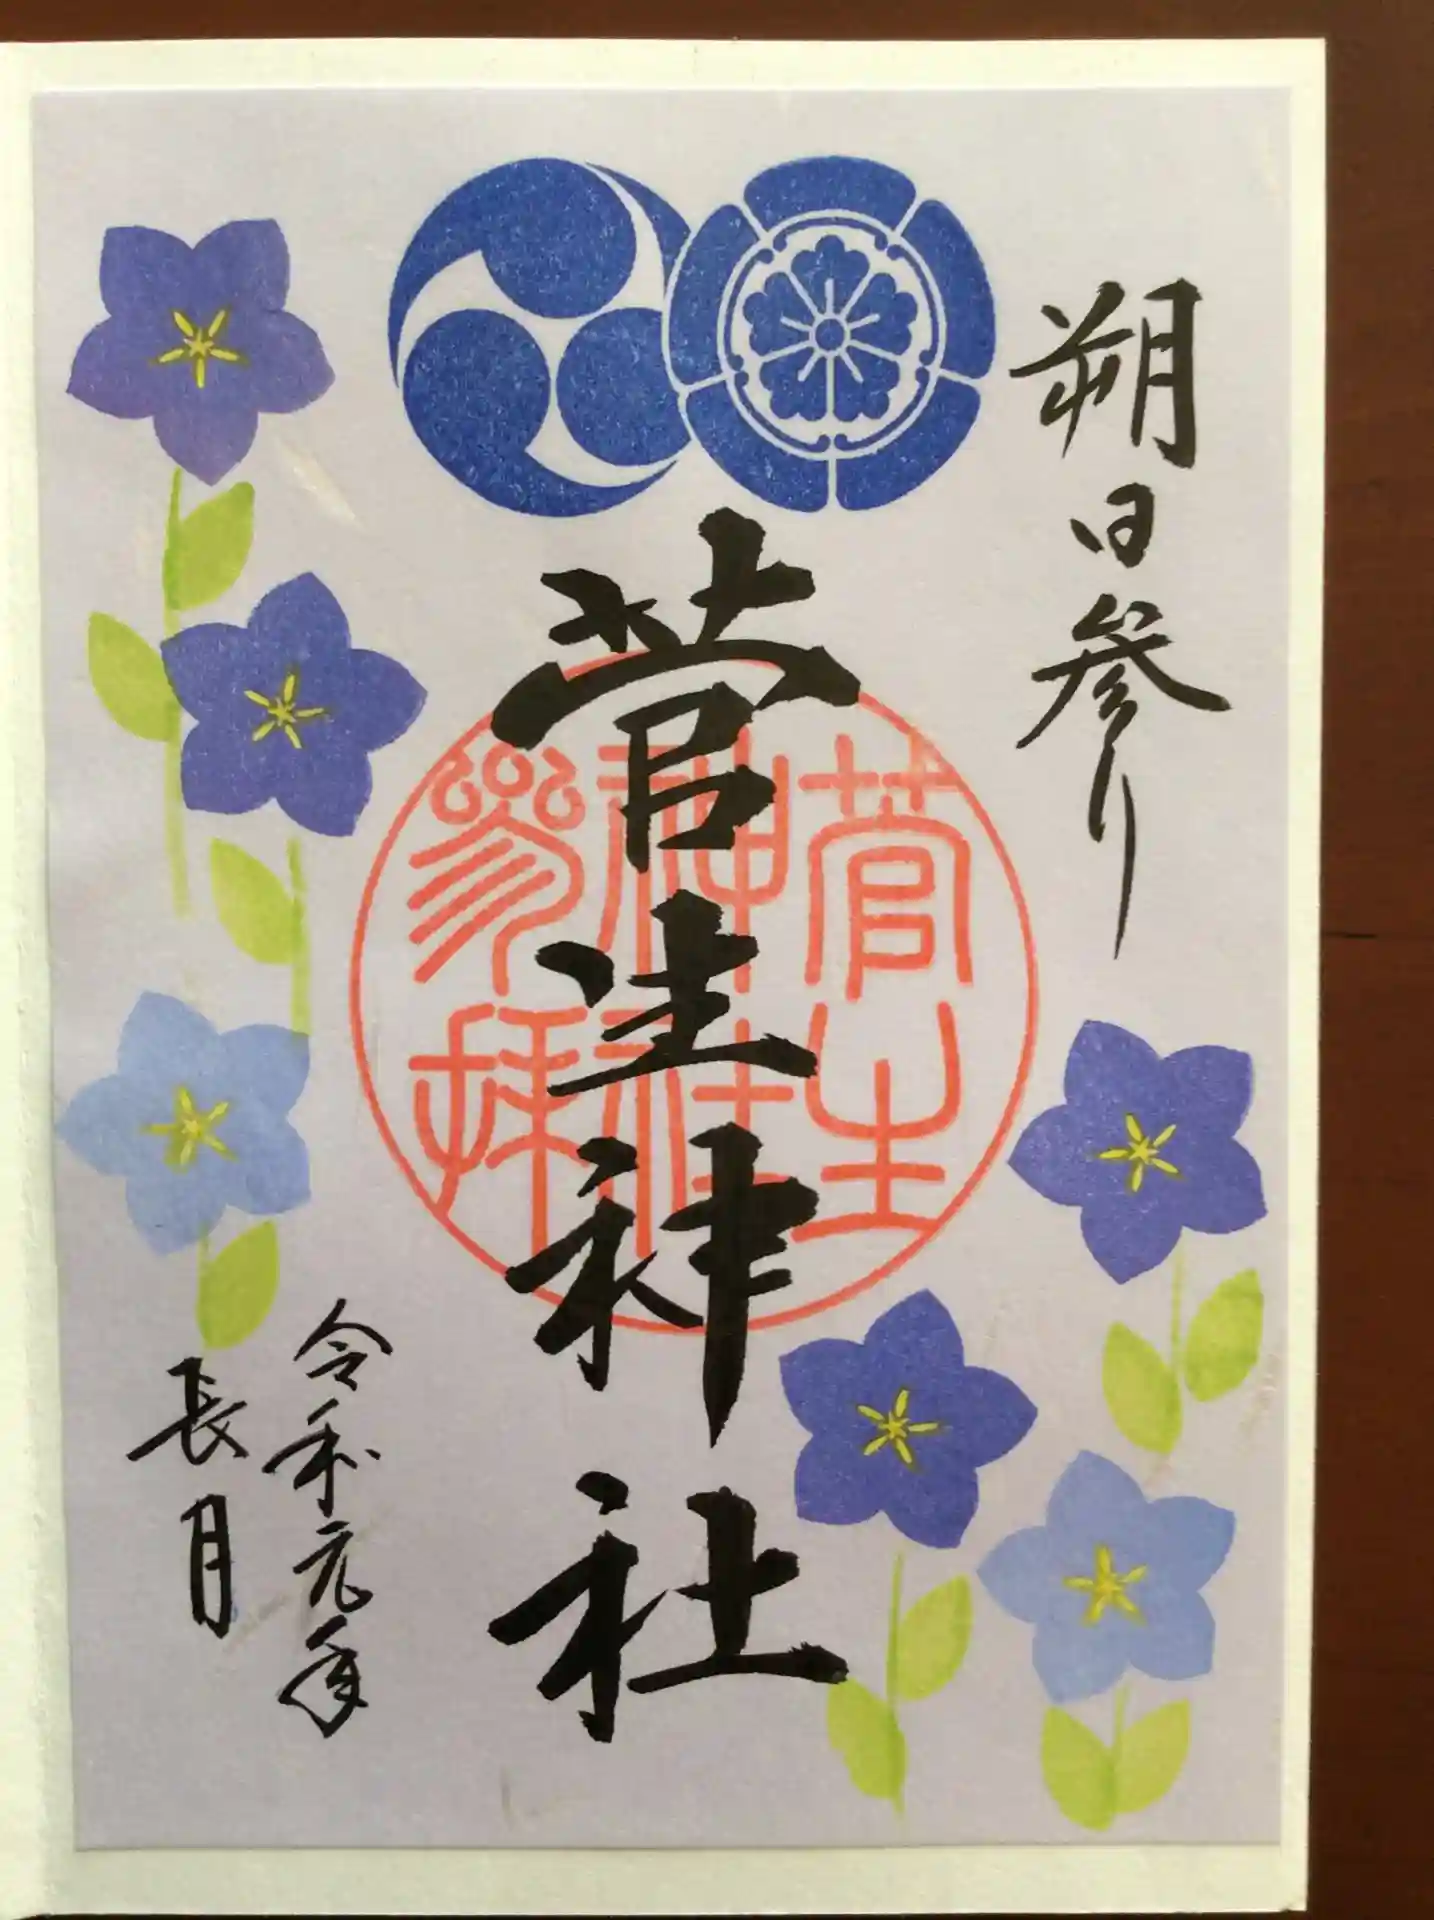 朔日参り
菅生神社
菅生
神社
参拝
令和元年
長月